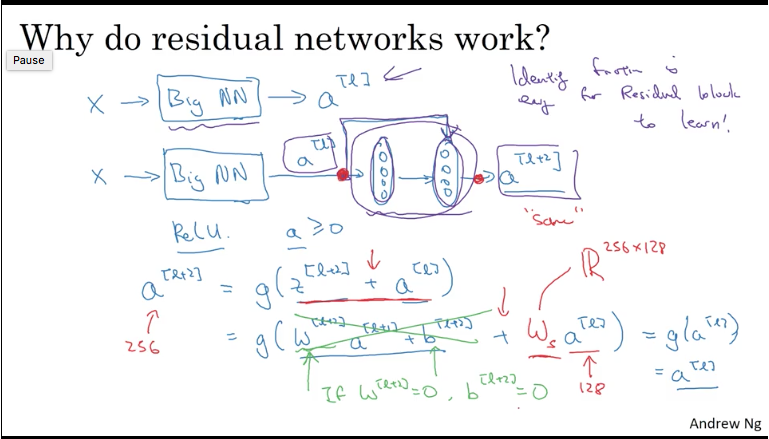 Why do residual networks work?
Pause
X → Big NN → a^[l]
Identity function is
easy for Residual block
to learn!
X → Big NN a^[l] → a^[l+2]
"Same"
ReLU. a ≥ 0
ℝ^256×128
a^[l+2] = g(z^[l+2] + a^[l])
256
= g(W^[l+2] a^[l+1] + b^[l+2] + W_s a^[l]) = g(a^[l])
= a^[l]
If W^[l+2] = 0, b^[l+2] = 0
128
Andrew Ng